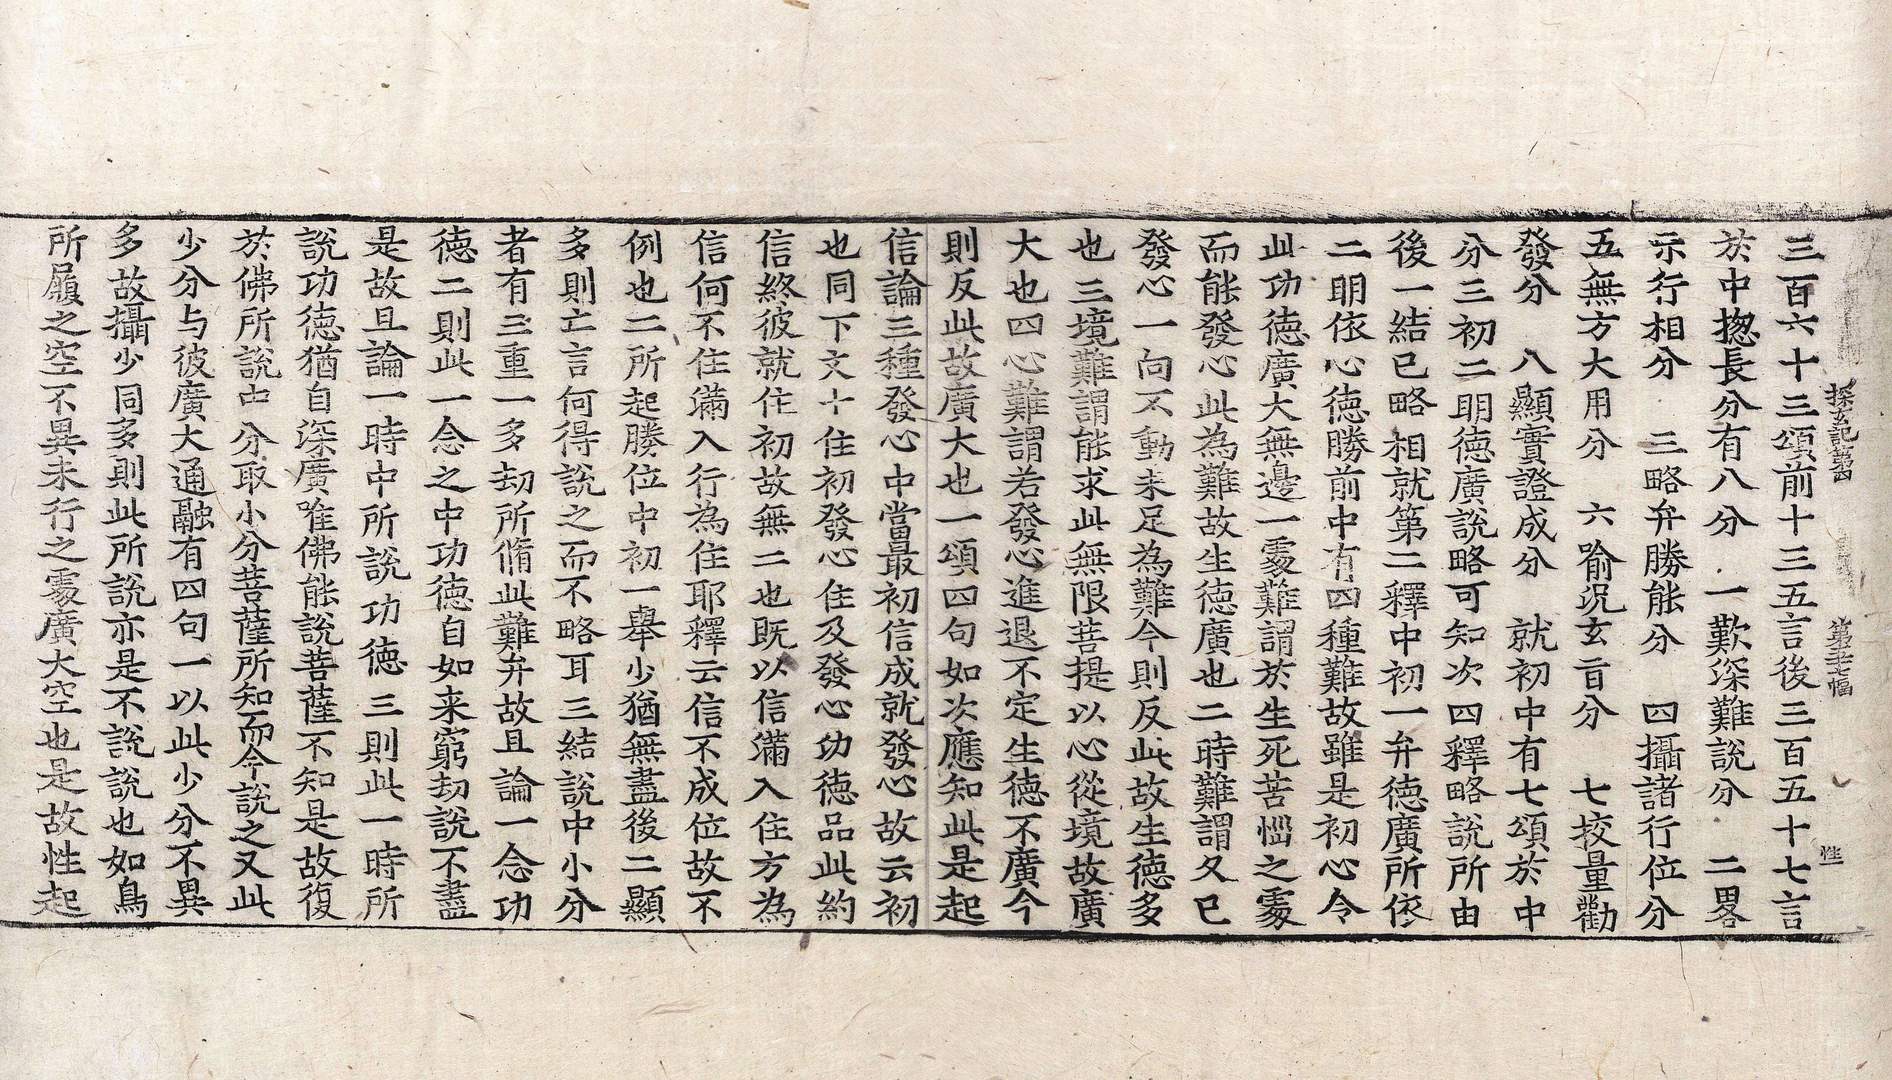 探玄記第四　第三十七幅　性
三百六十三頌前十三五言後三百五十七言
於中揔長分有八分　一歎深難說分　二畧
示行相分　三略弁勝能分　四攝諸行位分
五無方大用分　六喻況玄旨分　七挍量勸
發分　八顯實證成分　就初中有七頌於中
分三初二明德廣說略可知次四釋略說所由
後一結已略相就第二釋中初一弁德廣所依
二明依心德勝前中有四種難故雖是初心令
此功德廣大無邊一處難謂於生死苦惱之處
而能發心此為難故生德廣也二時難謂久已
發心一向不動未足為難今則反此故生德多
也三境難謂能求此無限菩提以心從境故廣
大也四心難謂若發心進退不定生德不廣今
則反此故廣大也一頌四句如次應知此是起
信論三種發心中當最初信成就發心故云初
也同下文十住初發心住及發心功德品此約
信終彼就住初故無二也既以信滿入住方為
信何不住滿入行為住耶釋云信不成位故不
例也二所起勝位中初一舉少猶無盡後二顯
多則亡言何得說之而不略耳三結說中小分
者有三重一多劫所脩此難弁故且論一念功
德二則此一念之中功德自如来窮劫說不盡
是故且論一時中所說功德三則此一時所
說功德猶自深廣唯佛能說菩薩不知是故復
於佛所說中分取小分菩薩所知而今說之又此
少分与彼廣大通融有四句一以此少分不異
多故攝少同多則此所說亦是不說說也如鳥
所履之空不異未行之處廣大空也是故性起